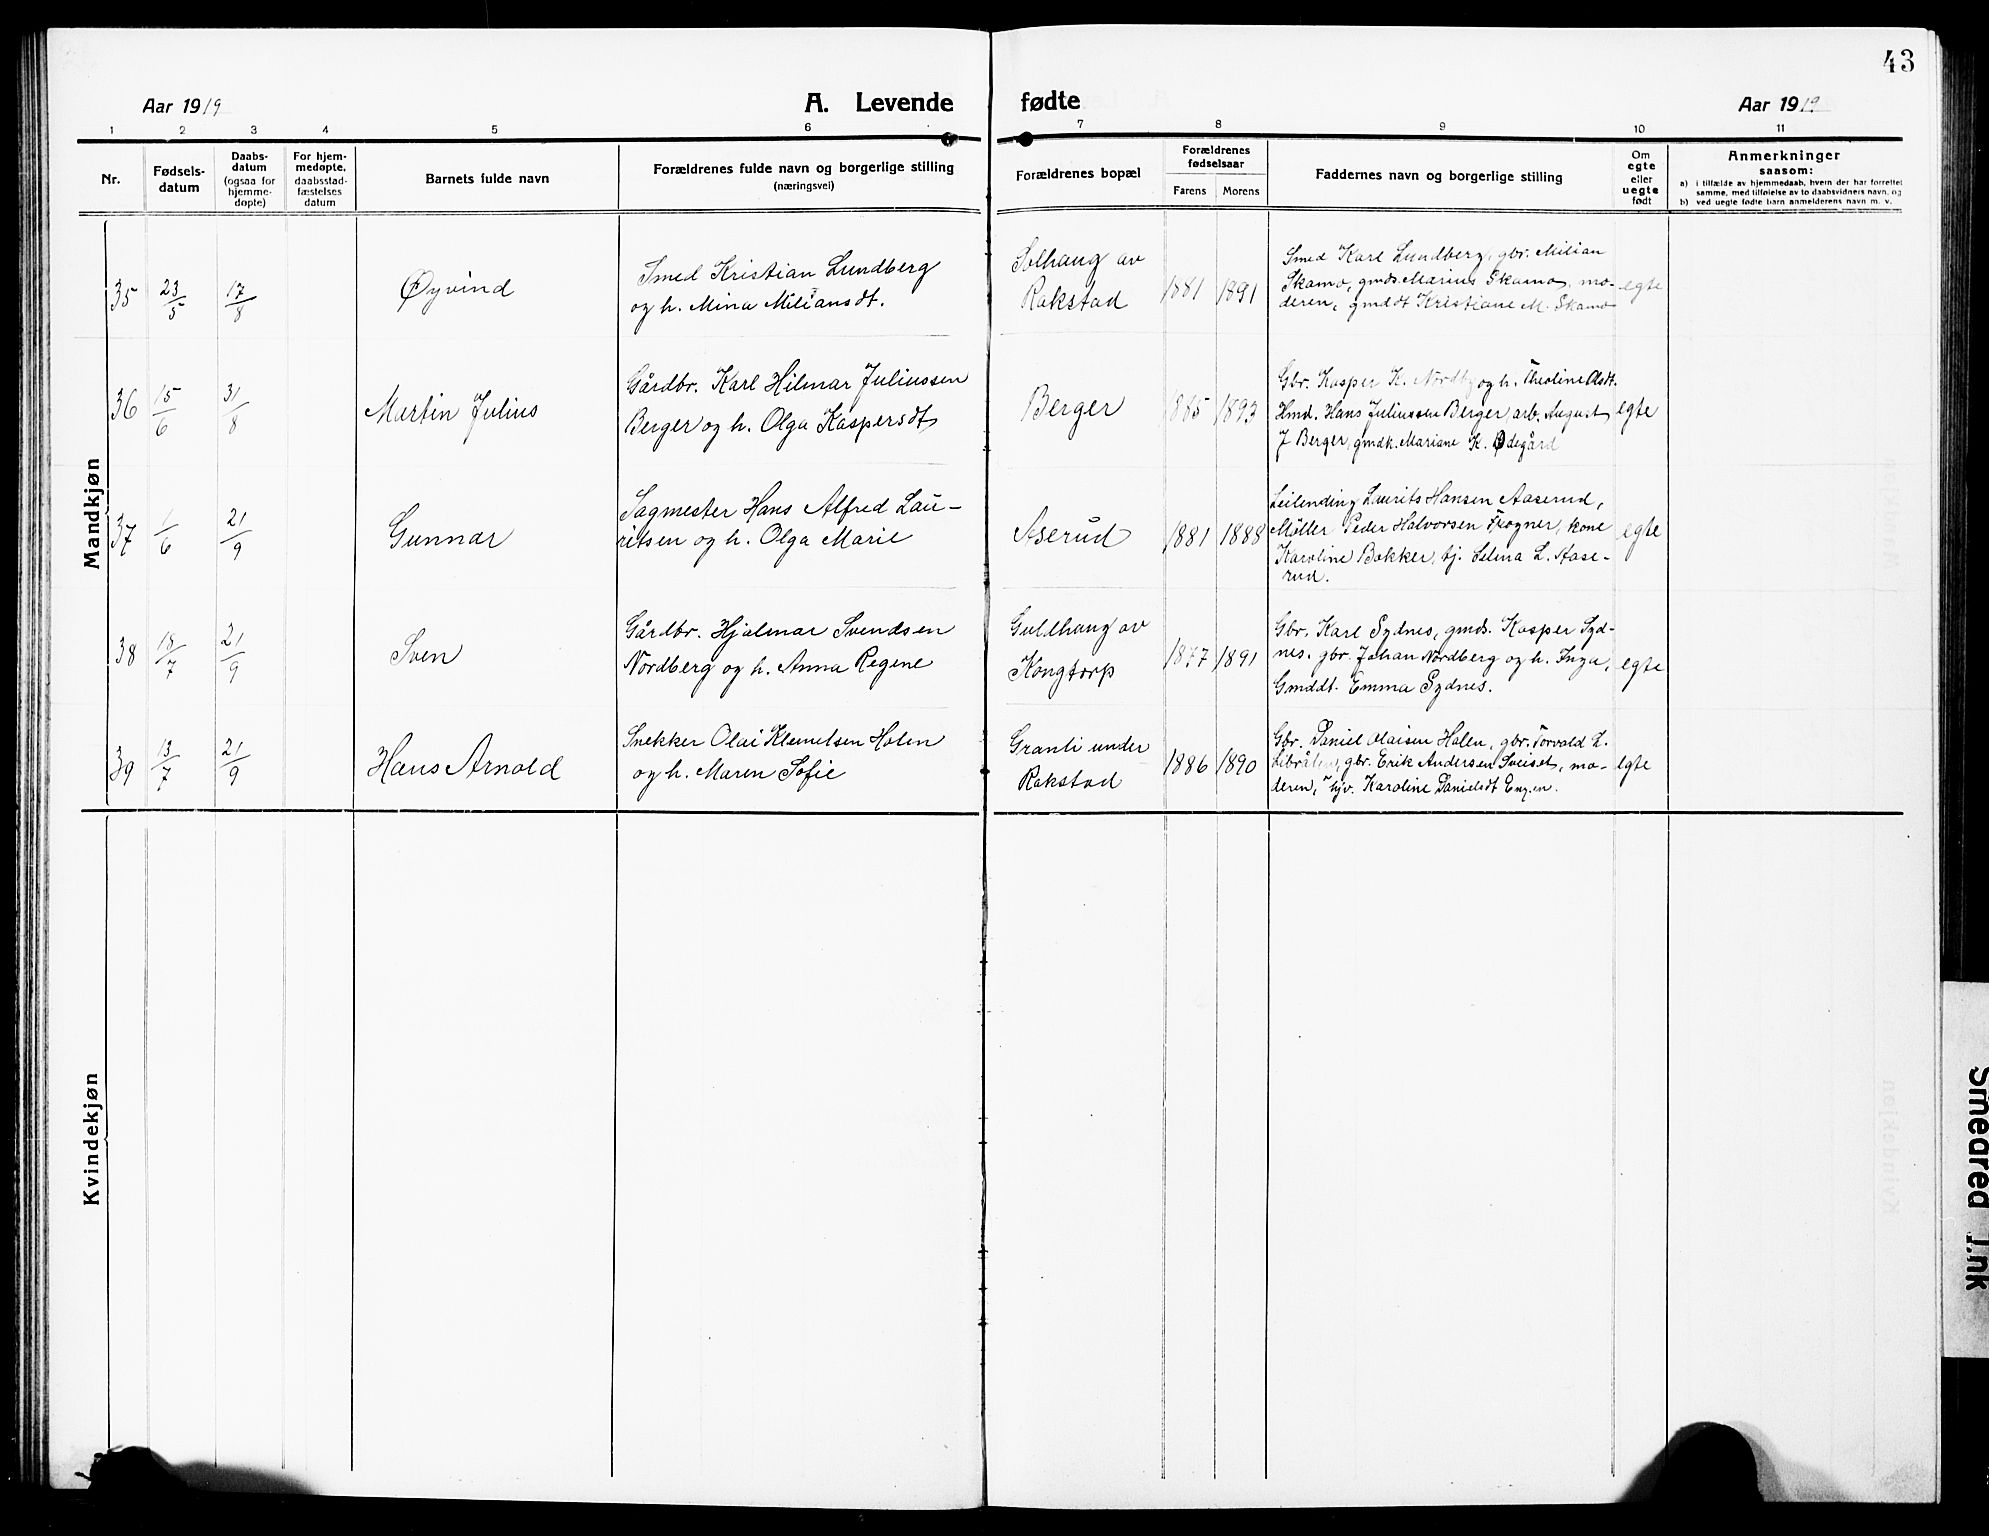 43
Aar 1919
A. Levende fødte
Aar 1919
1 2 3 4 5 6 7 8 9 10 11
Nr.
Fødsels-
datum
Daabs-
datum
(ogsaa for
hjemme-
døpte)
For hjem-
medøpte,
daabsstad-
fæstelses
datum
Barnets fulde navn
Forældrenes fulde navn og borgerlige stilling
(næringsvei)
Forældrenes bopæl
Forældrenes
fødselsaar
Farens Morens
Faddernes navn og borgerlige stilling
Om
egte
eller
uegte
født
Anmerkninger
saasom:
a) i tilfælde av hjemmedaab, hvem der har forrettet
samme, med tilføielse av to daabsvidners navn, og
b) ved uegte fødte barn anmelderens navn m. v.
Mandkjøn
35
23/5
17/8
Øyvind
Smed Kristian Lundberg
og h. Mina Miliansdt.
Solhaug av
Rakstad
1881 1891
Smed Karl Lundberg, gbr. Milian
Skamo, gmds Marius Skamo, mo-
deren, gmddt Kristiane M. Skamo
egte
36
15/6
31/8
Martin Julius
Gårdbr. Karl Hilmar Juliussen
Berger og h. Olga Kaspersdt
Berger
1893
Gbr. Kasper K. Nordby og h. Theoline Olsdt.
Hmd. Hans Juliussen Berger arb. August
J Berger, gmdk. Mariane K. Ødegård
egte
37
1/6
21/9
Gunnar
Sagmester Hans Alfred Lau-
ritsen og h. Olga Marie
Aserud
1881 1888
Leilending Laurits Hansen Aaserud,
Møller Peder Halvorsen Frogner, kone
Karoline Bakker, tj. Selma L. Aase-
rud.
egte
38
18/7
21/9
Sven
Gårdbr. Hjalmar Svendsen
Nordberg og h. Anna Regene
Guldhaug av
Kongtorp
1877 1891
Gbr. Karl Sydnes, gmds. Kasper Syd-
nes. gbr. Johan Nordberg og h. Inga,
Gmddt. Emma Sydnes.
egte
39
13/7
21/9
Hans Arnold
Snekker Olai Klemetsen Holen
og h. Maren Sofie
Granli under
Rakstad
1886 1890
Gbr. Daniel Olaisen Holen, gbr. Torvald L.
gbr. Erik Andersen Sveiset, mo-
deren, hjv. Karoline Danielsdt Engen.
egte
Kvindekjøn
Smeared Ink